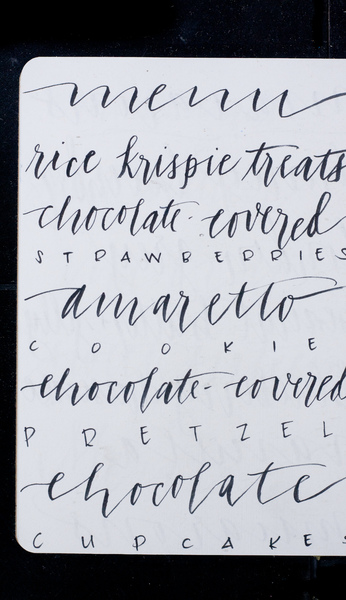 menu
rice krispie treats
chocolate-covered
STRAWBERRIES
amaretto
COOKIE
chocolate-covered
PRETZEL
chocolate
CUPCAKES